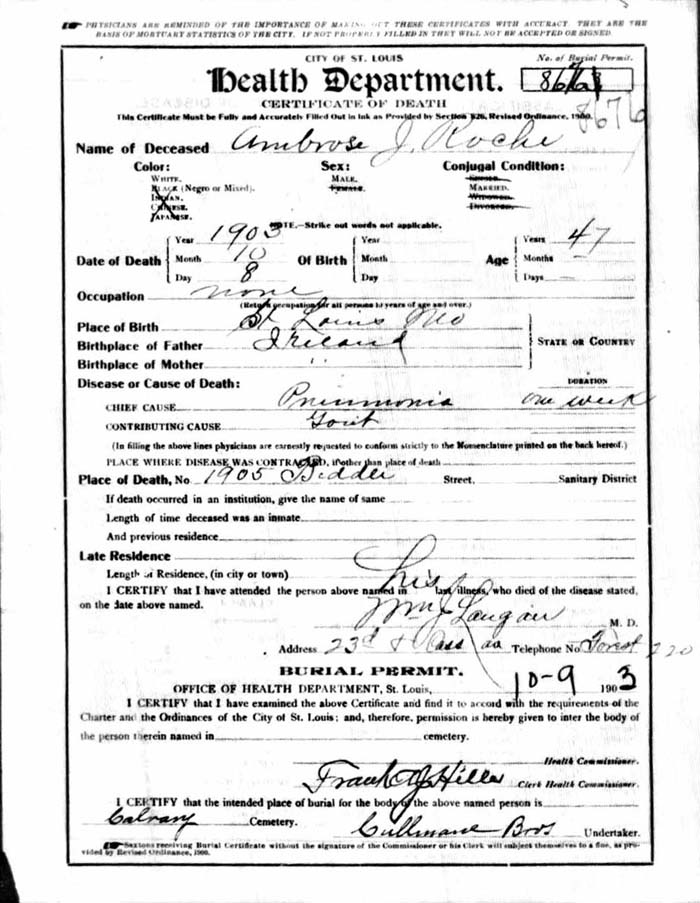 PHYSICIANS ARE REMINDED OF THE IMPORTANCE OF MAKING OUT THESE CERTIFICATES WITH ACCURACY. THEY ARE THE
BASIS OF MORTUARY STATISTICS OF THE CITY. IF NOT PROPERLY FILLED IN THEY WILL NOT BE ACCEPTED OR SIGNED
CITY OF ST. LOUIS
No. of Burial Permit.
Health Department.
CERTIFICATE OF DEATH
8676
This Certificate Must be Fully and Accurately Filled Out in Ink as Provided by Section 826, Revised Ordinance, 1900.
Name of Deceased Ambrose J. Roche
Color: Sex: Conjugal Condition:
WHITE. MALE. SINGLE.
BLACK (Negro or Mixed). FEMALE. MARRIED.
INDIAN. WIDOWED.
CHINESE. DIVORCED.
JAPANESE.
NOTE.—Strike out words not applicable.
Year 1903 Year Years 47
Date of Death Month 10 Of Birth Month Age Months —
Day 8 Day Days
Occupation none
(Return occupation for all persons 10 years of age and over.)
Place of Birth St Louis Mo
Birthplace of Father Ireland STATE OR COUNTRY
Birthplace of Mother "
Disease or Cause of Death: DURATION
CHIEF CAUSE Pneumonia one week
CONTRIBUTING CAUSE Gout
(In filling the above lines physicians are earnestly requested to conform strictly to the Nomenclature printed on the back hereof.)
PLACE WHERE DISEASE WAS CONTRACTED, if other than place of death
Place of Death, No. 1905 Biddle Street, Sanitary District
If death occurred in an institution, give the name of same
Length of time deceased was an inmate
And previous residence
Late Residence
Length of Residence, (in city or town)
I CERTIFY that I have attended the person above named in his last illness, who died of the disease stated,
on the date above named.
Wm J Langan M. D.
Address 23d & Cass av Telephone No. Forest 220
BURIAL PERMIT.
OFFICE OF HEALTH DEPARTMENT, St. Louis, 10-9 1903
I CERTIFY that I have examined the above Certificate and find it to accord with the requirements of the
Charter and the Ordinances of the City of St. Louis; and, therefore, permission is hereby given to inter the body of
the person therein named in cemetery.
Health Commissioner.
Frank J Hiller Clerk Health Commissioner.
I CERTIFY that the intended place of burial for the body of the above named person is
Calvary Cemetery. Cullinane Bros Undertaker.
Sextons receiving Burial Certificate without the signature of the Commissioner or his Clerk will subject themselves to a fine, as pro-
vided by Revised Ordinance, 1900.